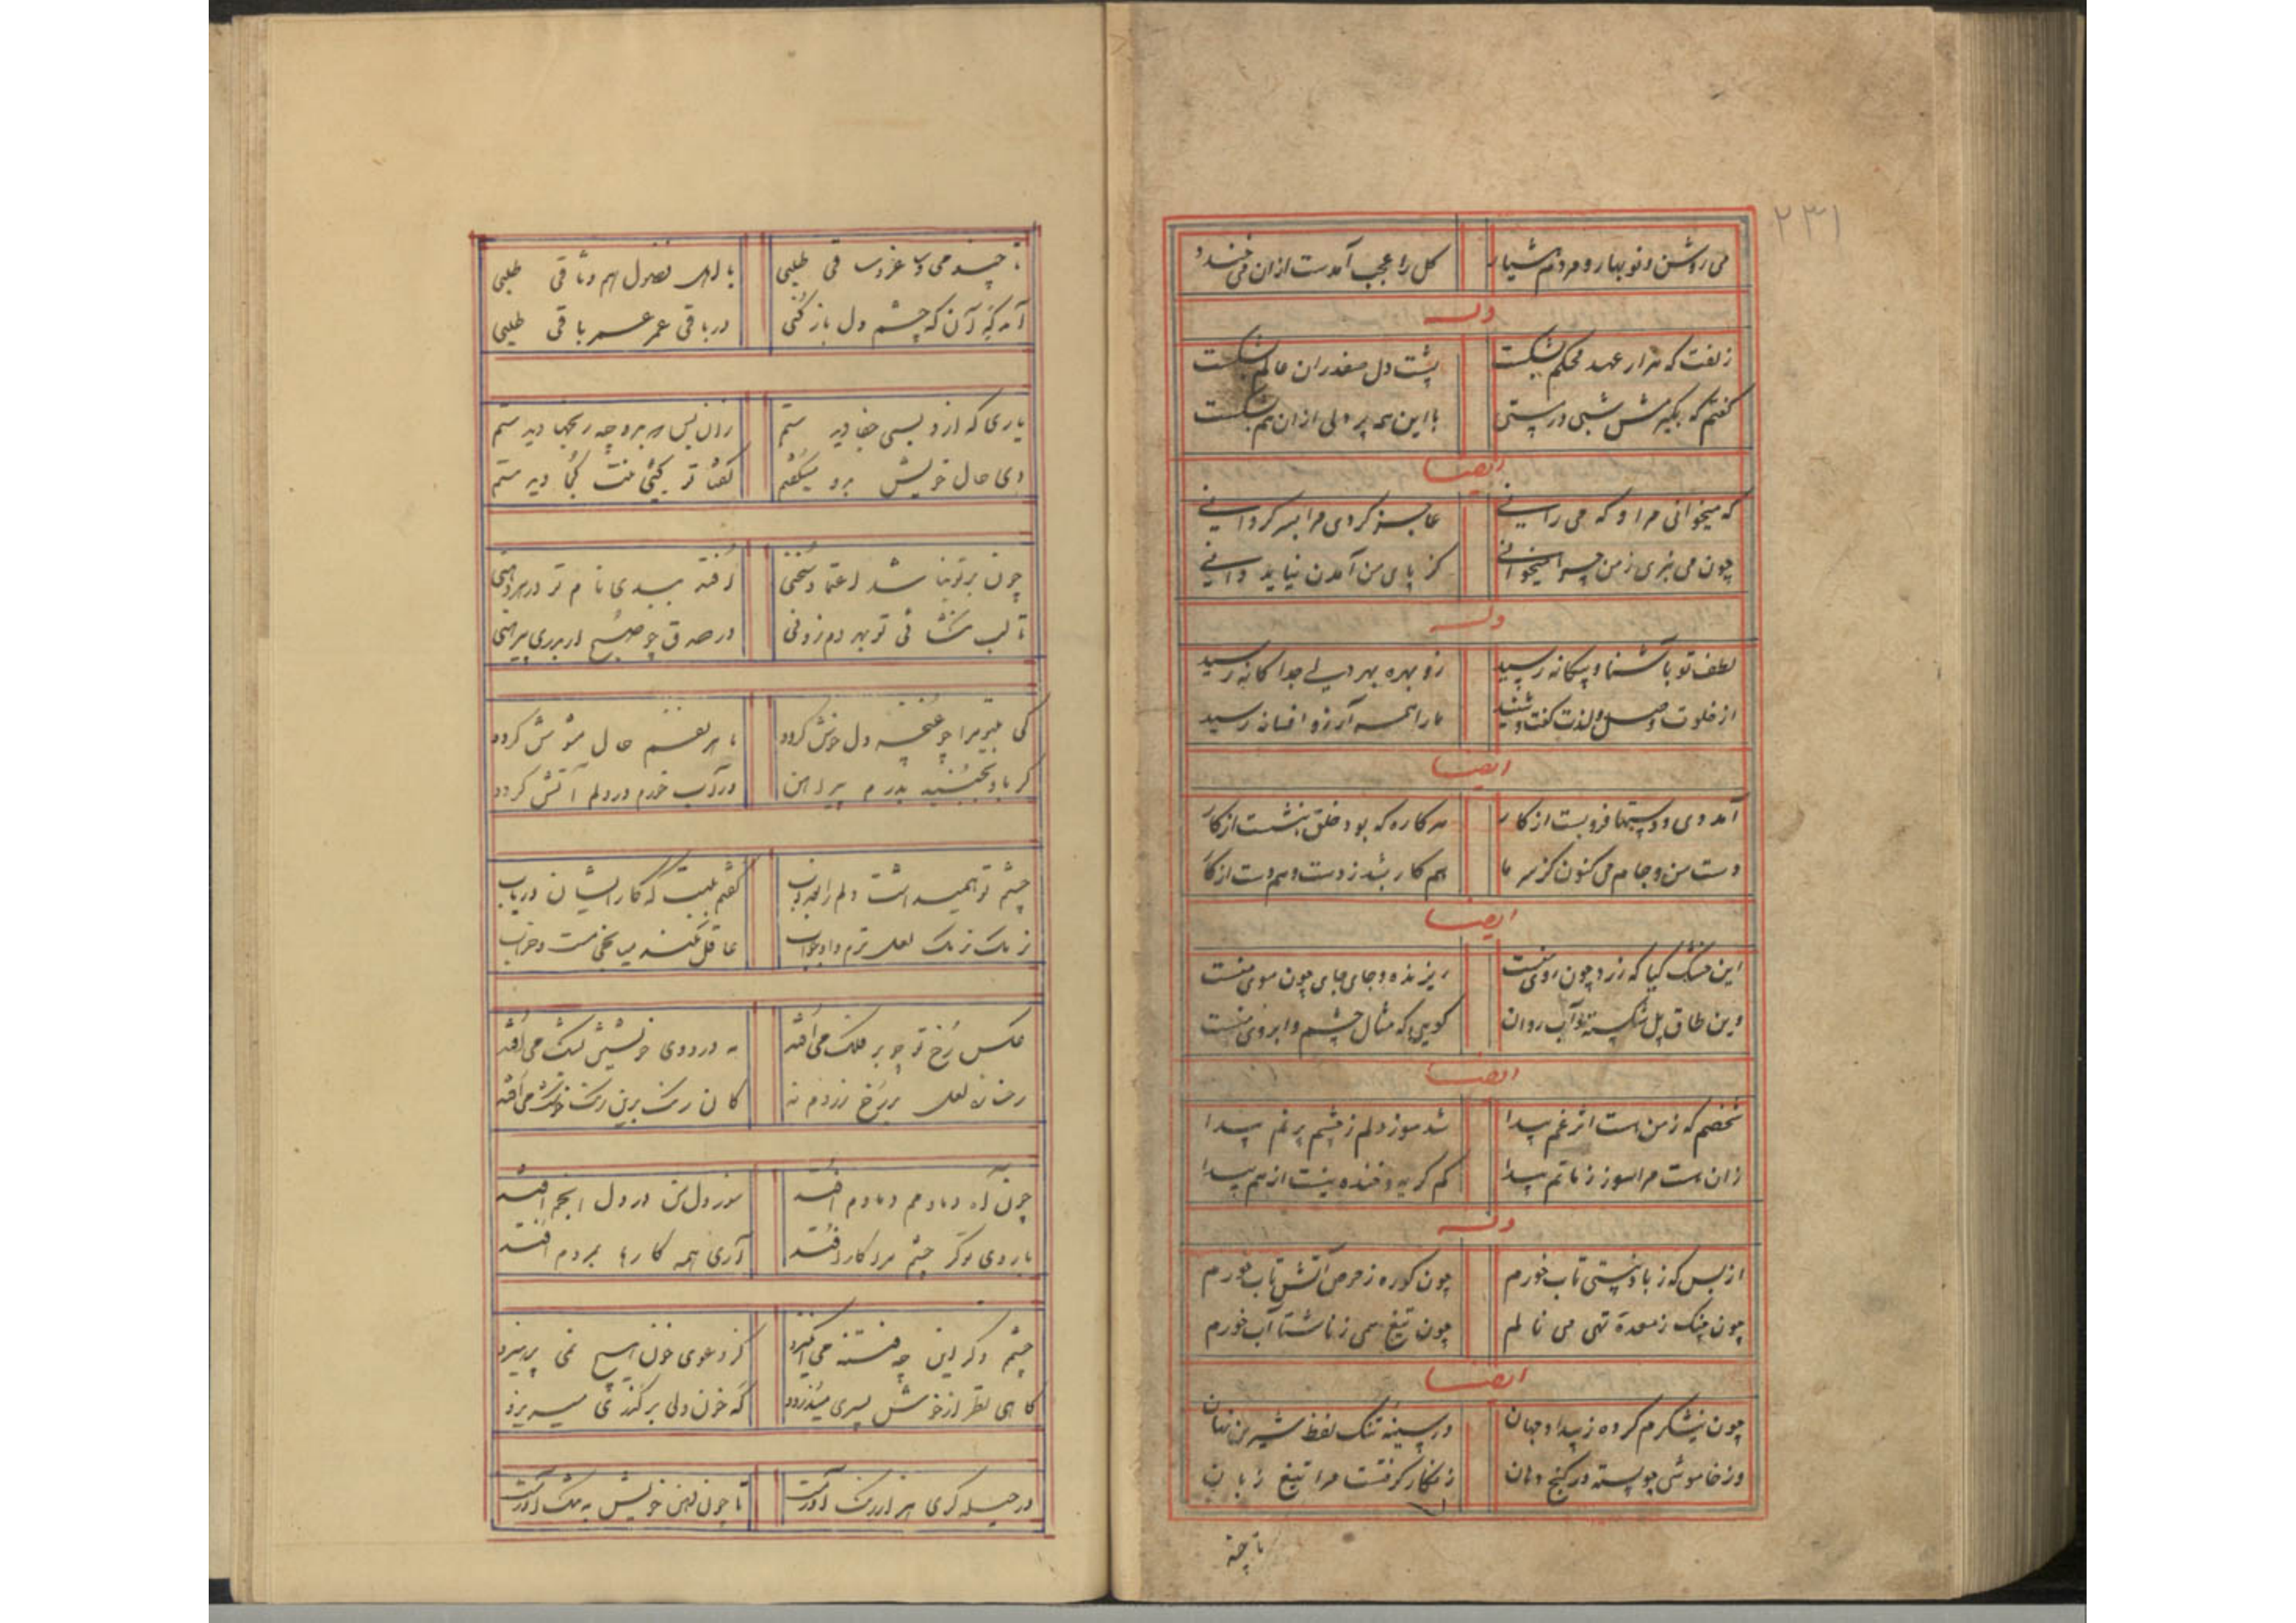 ۲۳۱
می روشن و نوبهار و مردم هشیار گل را عجب آمدست ازان می خندد
وله
زلفت که هزار عهد محکم بشکست پشت دل صفدران عالم بشکست
گفتم که بگیرمش شبی در پستی با این همه پر دلی ازان هم بشکست
ایضا
که میخوانی مرا و که می رانی عاجز کردی مرا بسر گردانی
چون می نبری ز من چرا میخوانی کز پای من آمدن نیاید دانی
وله
لطف تو بآشنا و بیگانه رسید زو بهره بهر دلی جداگانه رسید
از خلوت وصل و لذت گفت و شنید ما را همه آرزو افسانه رسید
ایضا
آمد دی و دستها فرو بست از کار هر کاره که بود خلق بنشست از کار
دست من و جام می کنون کز سر ما هم کار بشد ز دست و هم دست از کار
ایضا
این خشک گیا که زرد چون روی منست ریزنده و جای جای چون موی منست
وین طاق پل شکسته و آب روان گویی که مثال چشم و ابروی منست
ایضا
شخصم که ز من هست اثر غم پیدا شد سوز دلم ز چشم پر نم پیدا
زان هست مرا سوز ز ماتم پیدا کم گریه و خنده نیست از هم پیدا
وله
از بس که ز باد نیستی تاب خورم چون کوره ز حرص آتش ناب خورم
چون چنگ ز معدهٔ تهی می نالم چون تیغ همی ز ناشتا آب خورم
ایضا
چون نیشکرم کرده ز پیدا و جهان در سینه تنگ لفظ شیرین نهان
وز خاموشی چو پسته در کنج دهان زنگار گرفتست مرا تیغ زبان
تا چند
تا چند می و عروس فی طلبی با اهل فضول هم وثاقی طلبی
آمد گه آن که چشم دل باز کنی در باقی عمر عمر باقی طلبی
یاری که ازو بسی جفا دیدستم زان پس هر چه رنجها دیدستم
دی حال خویش برو میگفتم گفتا تو کیئی منت کجا دیدستم
چون بر تو نباشد اعتماد سخنی افتد ببدی نام تو در هر دهنی
تا لب نگشائی تو بهر دم زدنی در صدق چو صبح ار بدری پیرهنی
کی بیتو مرا چو غنچه دل خوش گردد تا هر نفسم حال مشوش گردد
گر باد نجنبید بدرم پیراهن ور آب خورم در دلم آتش گردد
چشم تو همیداشت دلم را بعذاب گفتم بلبت که کار ایشان دریاب
نزدیک لعل ترم داد جواب عاقل نکند میانجی مست و خراب
عکس رخ تو چو بر فلک می افتد مه در روی خویش بشک می افتد
رخسارهٔ لعل بر رخ زردم نه کان رنگ برین رنگ خنک می افتد
چون آه دمادم دمادم افتد سوز دل من در دل انجم افتد
با روی تو گر چشم مرا کار افتد آری همه کارها بمردم افتد
چشم و گر این چه فتنه می انگیزد کز دعوی خون هیچ نمی پرهیزد
گاهی نظر از خوش پسری میدزدد گه خون دلی بر گذری میریزد
در حیله گری هزار رنگ آوردت تا چون دهن خویش به تنگ آوردت